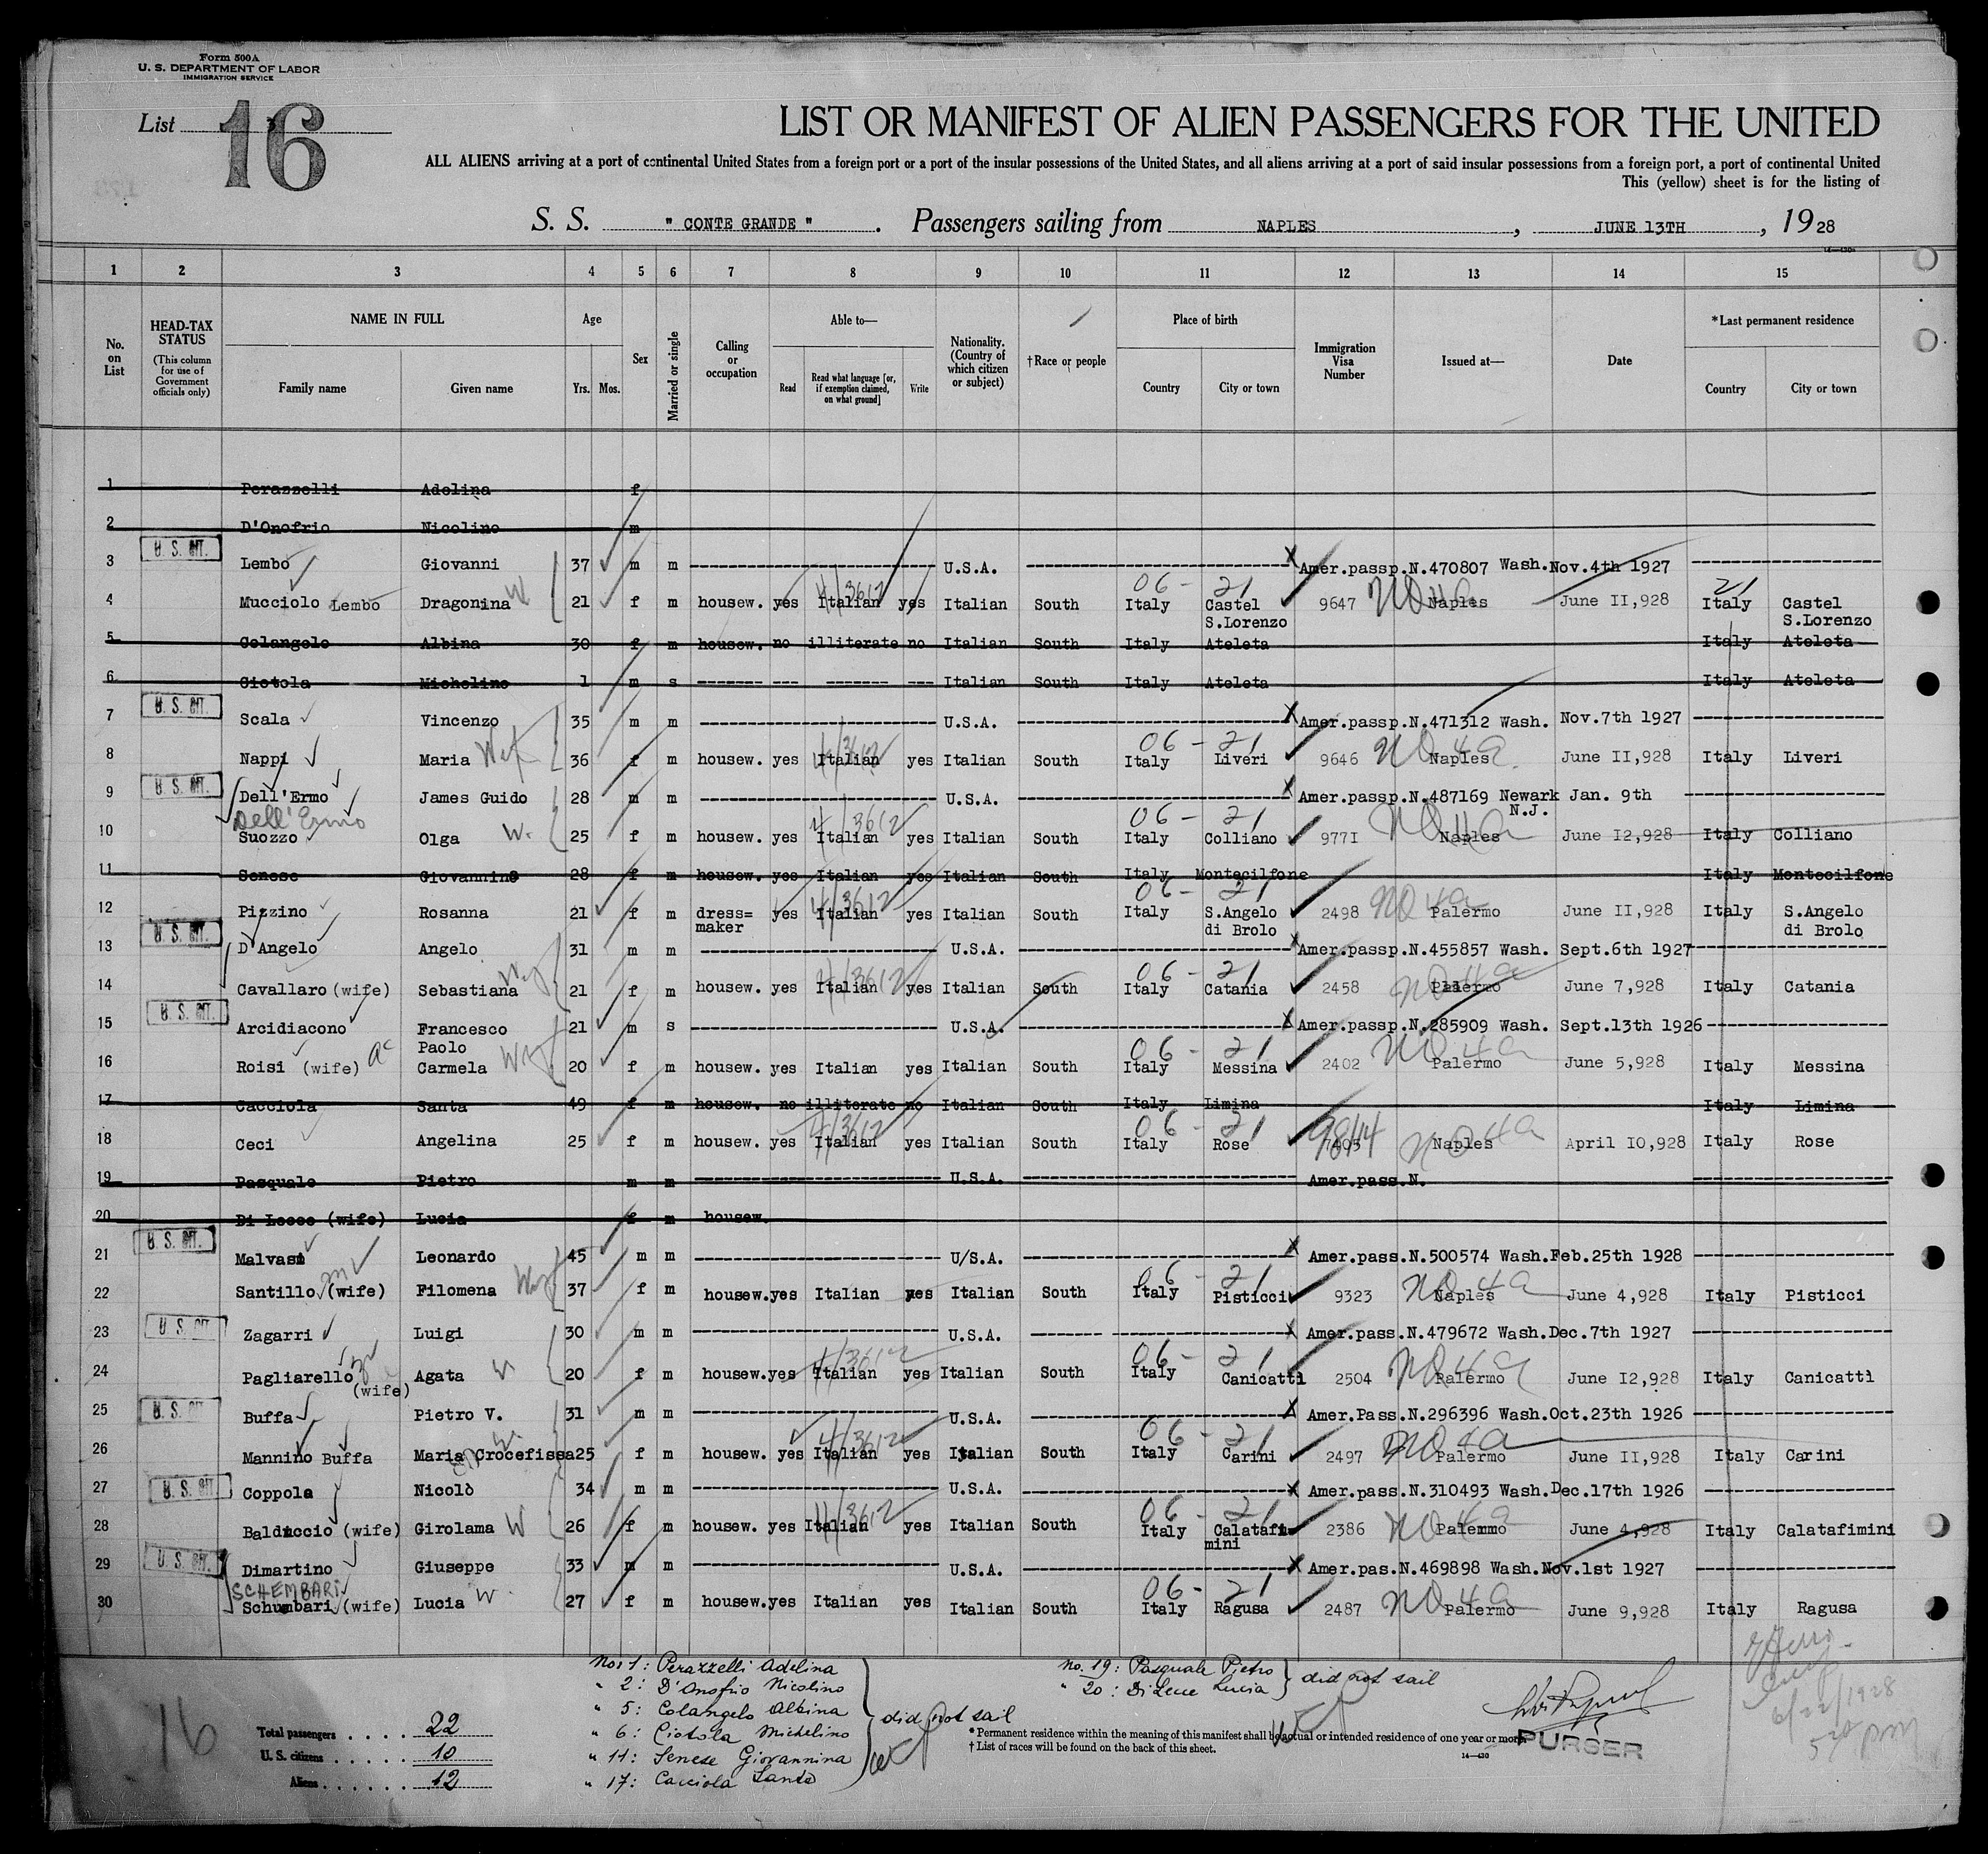 Form 500A
U. S. DEPARTMENT OF LABOR
IMMIGRATION SERVICE
List 3
16
LIST OR MANIFEST OF ALIEN PASSENGERS FOR THE UNITED
ALL ALIENS arriving at a port of continental United States from a foreign port or a port of the insular possessions of the United States, and all aliens arriving at a port of said insular possessions from a foreign port, a port of continental United
This (yellow) sheet is for the listing of
S. S. " CONTE GRANDE " . Passengers sailing from NAPLES , JUNE 13TH , 1928
1 2 3 4 5 6 7 8 9 10 11 12 13 14 15
No. on List
HEAD-TAX STATUS
(This column for use of Government officials only)
NAME IN FULL
Family name Given name
Age
Yrs. Mos.
Sex
Married or single
Calling or occupation
Able to—
Read
Read what language [or, if exemption claimed, on what ground]
Write
Nationality. (Country of which citizen or subject)
†Race or people
Place of birth
Country City or town
Immigration Visa Number
Issued at—
Date
*Last permanent residence
Country City or town
1 Perazzelli Adelina f
2 D'Onofrio Nicolino m
U. S. CIT.
3 Lembo Giovanni 37 m m U.S.A. X Amer.passp.N.470807 Wash. Nov.4th 1927
06 - 21 21
4 Mucciolo Lembo Dragonina W 21 f m housew. yes Italian 4/3612 yes Italian South Italy Castel S.Lorenzo 9647 NO 4a Naples June II,928 Italy Castel S.Lorenzo
5 Colangelo Albina 30 f m housew. no illiterate no Italian South Italy Ateleta Italy Ateleta
6 Ciotola Michelino 1 m s Italian South Italy Ateleta Italy Ateleta
U. S. CIT.
7 Scala Vincenzo 35 m m U.S.A. X Amer.passp.N.471312 Wash. Nov.7th 1927
06 - 21
8 Nappi Maria Wif 36 f m housew. yes Italian 4/3612 yes Italian South Italy Liveri 9646 NO 4a Naples June II,928 Italy Liveri
U. S. CIT.
9 Dell'Ermo James Guido 28 m m U.S.A. X Amer.passp.N.487169 Newark N.J. Jan. 9th
Dell'Ermo
06 - 21
10 Suozzo Olga W. 25 f m housew. yes Italian 4/3612 yes Italian South Italy Colliano 977I NO 4a Naples June I2,928 Italy Colliano
11 Senese Giovannina 28 f m housew. yes Italian yes Italian South Italy Montecilfone Italy Montecilfone
06 - 21
12 Pizzino Rosanna 21 f m dress= maker yes Italian 4/3612 yes Italian South Italy S.Angelo di Brolo 2498 NO 4a Palermo June II,928 Italy S.Angelo di Brolo
U. S. CIT.
13 D'Angelo Angelo 31 m m U.S.A. X Amer.passp.N.455857 Wash. Sept.6th 1927
06 - 21
14 Cavallaro (wife) Sebastiana 21 f m housew. yes Italian 4/3612 yes Italian South Italy Catania 2458 NO 4a Palermo June 7,928 Italy Catania
U. S. CIT.
15 Arcidiacono Francesco Paolo 21 m s U.S.A. X Amer.passp.N.285909 Wash. Sept.13th 1926
06 - 21
16 Roisi (wife) ac Carmela 20 f m housew. yes Italian yes Italian South Italy Messina 2402 NO 4a Palermo June 5,928 Italy Messina
17 Cacciola Santa 49 f m housew. no illiterate no Italian South Italy Limina Italy Limina
06 - 21
18 Ceci Angelina 25 f m housew. yes Italian 4/3612 yes Italian South Italy Rose NO 4a Naples April I0,928 Italy Rose
19 Pasquale Pietro m m U.S.A. Amer.pass.N.
20 Di Lecce (wife) Lucia f m housew.
U. S. CIT.
21 Malvasi Leonardo 45 m m U/S.A. X Amer.pass.N.500574 Wash.Feb.25th 1928
06 - 21
22 Santillo (wife) Filomena 37 f m housew. yes Italian yes Italian South Italy Pisticci 9323 NO 4a Naples June 4,928 Italy Pisticci
U. S. CIT.
23 Zagarri Luigi 30 m m U.S.A. X Amer.pass.N.479672 Wash.Dec.7th 1927
06 - 21
24 Pagliarello (wife) Agata W 20 f m housew. yes Italian 4/3612 yes Italian South Italy Canicattì 2504 NO 4a Palermo June I2,928 Italy Canicattì
U. S. CIT.
25 Buffa Pietro V. 31 m m U.S.A. X Amer.Pass.N.296396 Wash.Oct.23th 1926
06 - 21
26 Mannino Buffa Maria Crocefissa 25 f m housew. yes Italian 4/3612 yes Italian South Italy Carini 2497 NO 4a Palermo June II,928 Italy Carini
U. S. CIT.
27 Coppola Nicolò 34 m m U.S.A. X Amer.pass.N.310493 Wash.Dec.17th 1926
06 - 21
28 Balduccio (wife) Girolama W 26 f m housew. yes Italian 4/3612 yes Italian South Italy Calatafi mini 2386 NO 4a Palemmo June 4,928 Italy Calatafimini
U. S. CIT.
29 Dimartino Giuseppe 33 m m U.S.A. X Amer.pas.N.469898 Wash.Nov.1st 1927
SCHEMBARI
06 - 21
30 Schumbari (wife) Lucia W 27 f m housew. yes Italian yes Italian South Italy Ragusa 2487 NO 4a Palermo June 9,928 Italy Ragusa
Nos 1: Perazzelli Adelina
" 2: D'Onofrio Nicolino
" 5: Colangelo Albina
" 6: Ciotola Michelino
" 11: Senese Giovannina
" 17: Cacciola Santa
did not sail
No. 19: Pasquale Pietro
" 20: Di Lecce Lucia
did not sail
16
Total passengers . . . . 22
U. S. citizens . . . . . 10
Aliens . . . . . . 12
* Permanent residence within the meaning of this manifest shall be actual or intended residence of one year or more.
† List of races will be found on the back of this sheet.
14—430
PURSER
6/22/1928
5 30 PM